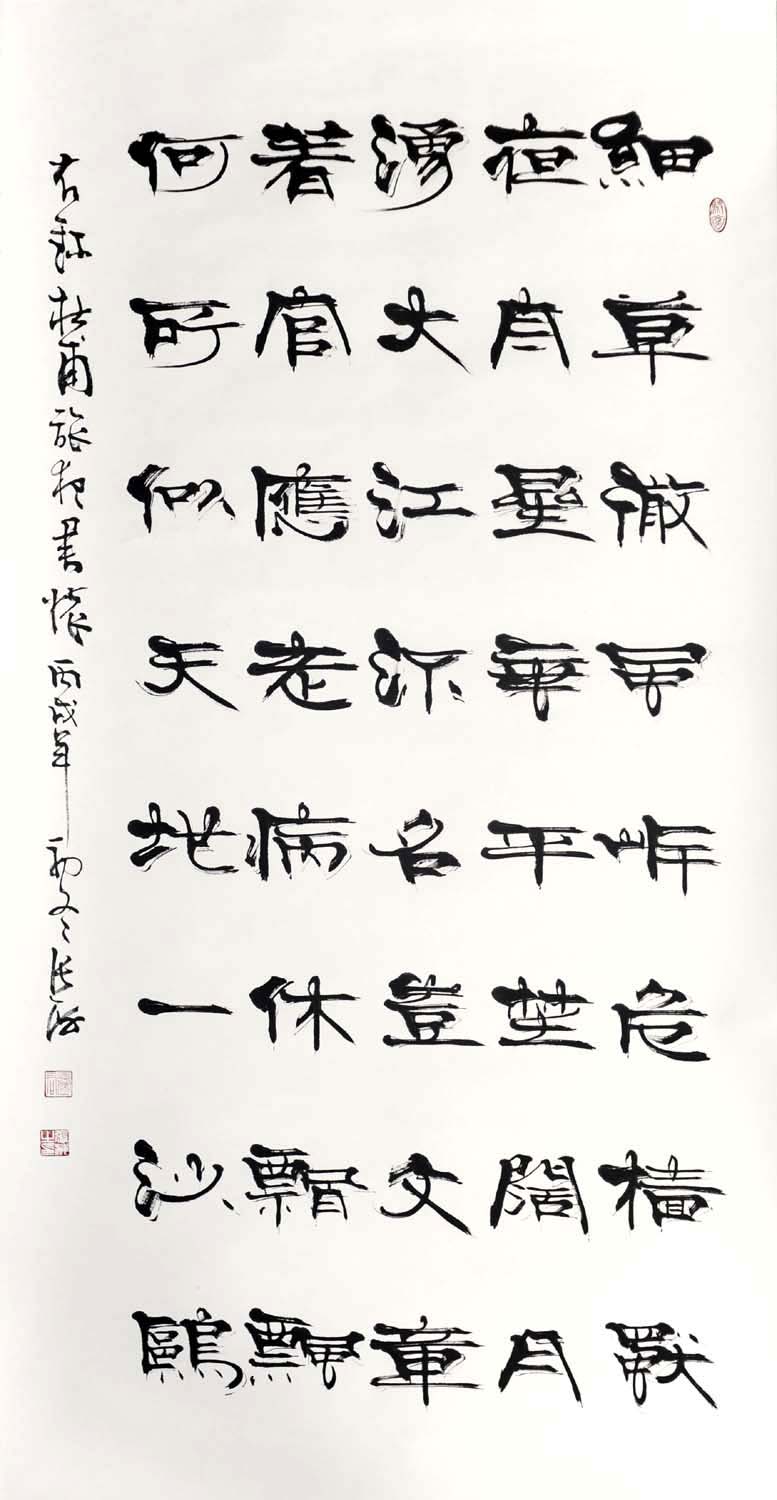 細草微風岸危檣獨
夜舟星垂平埜闊月
湧大江流名豈文章
著官應老病休飄飄
何所似天地一沙鷗
右錄杜甫旅夜書懷丙戌年初冬張海